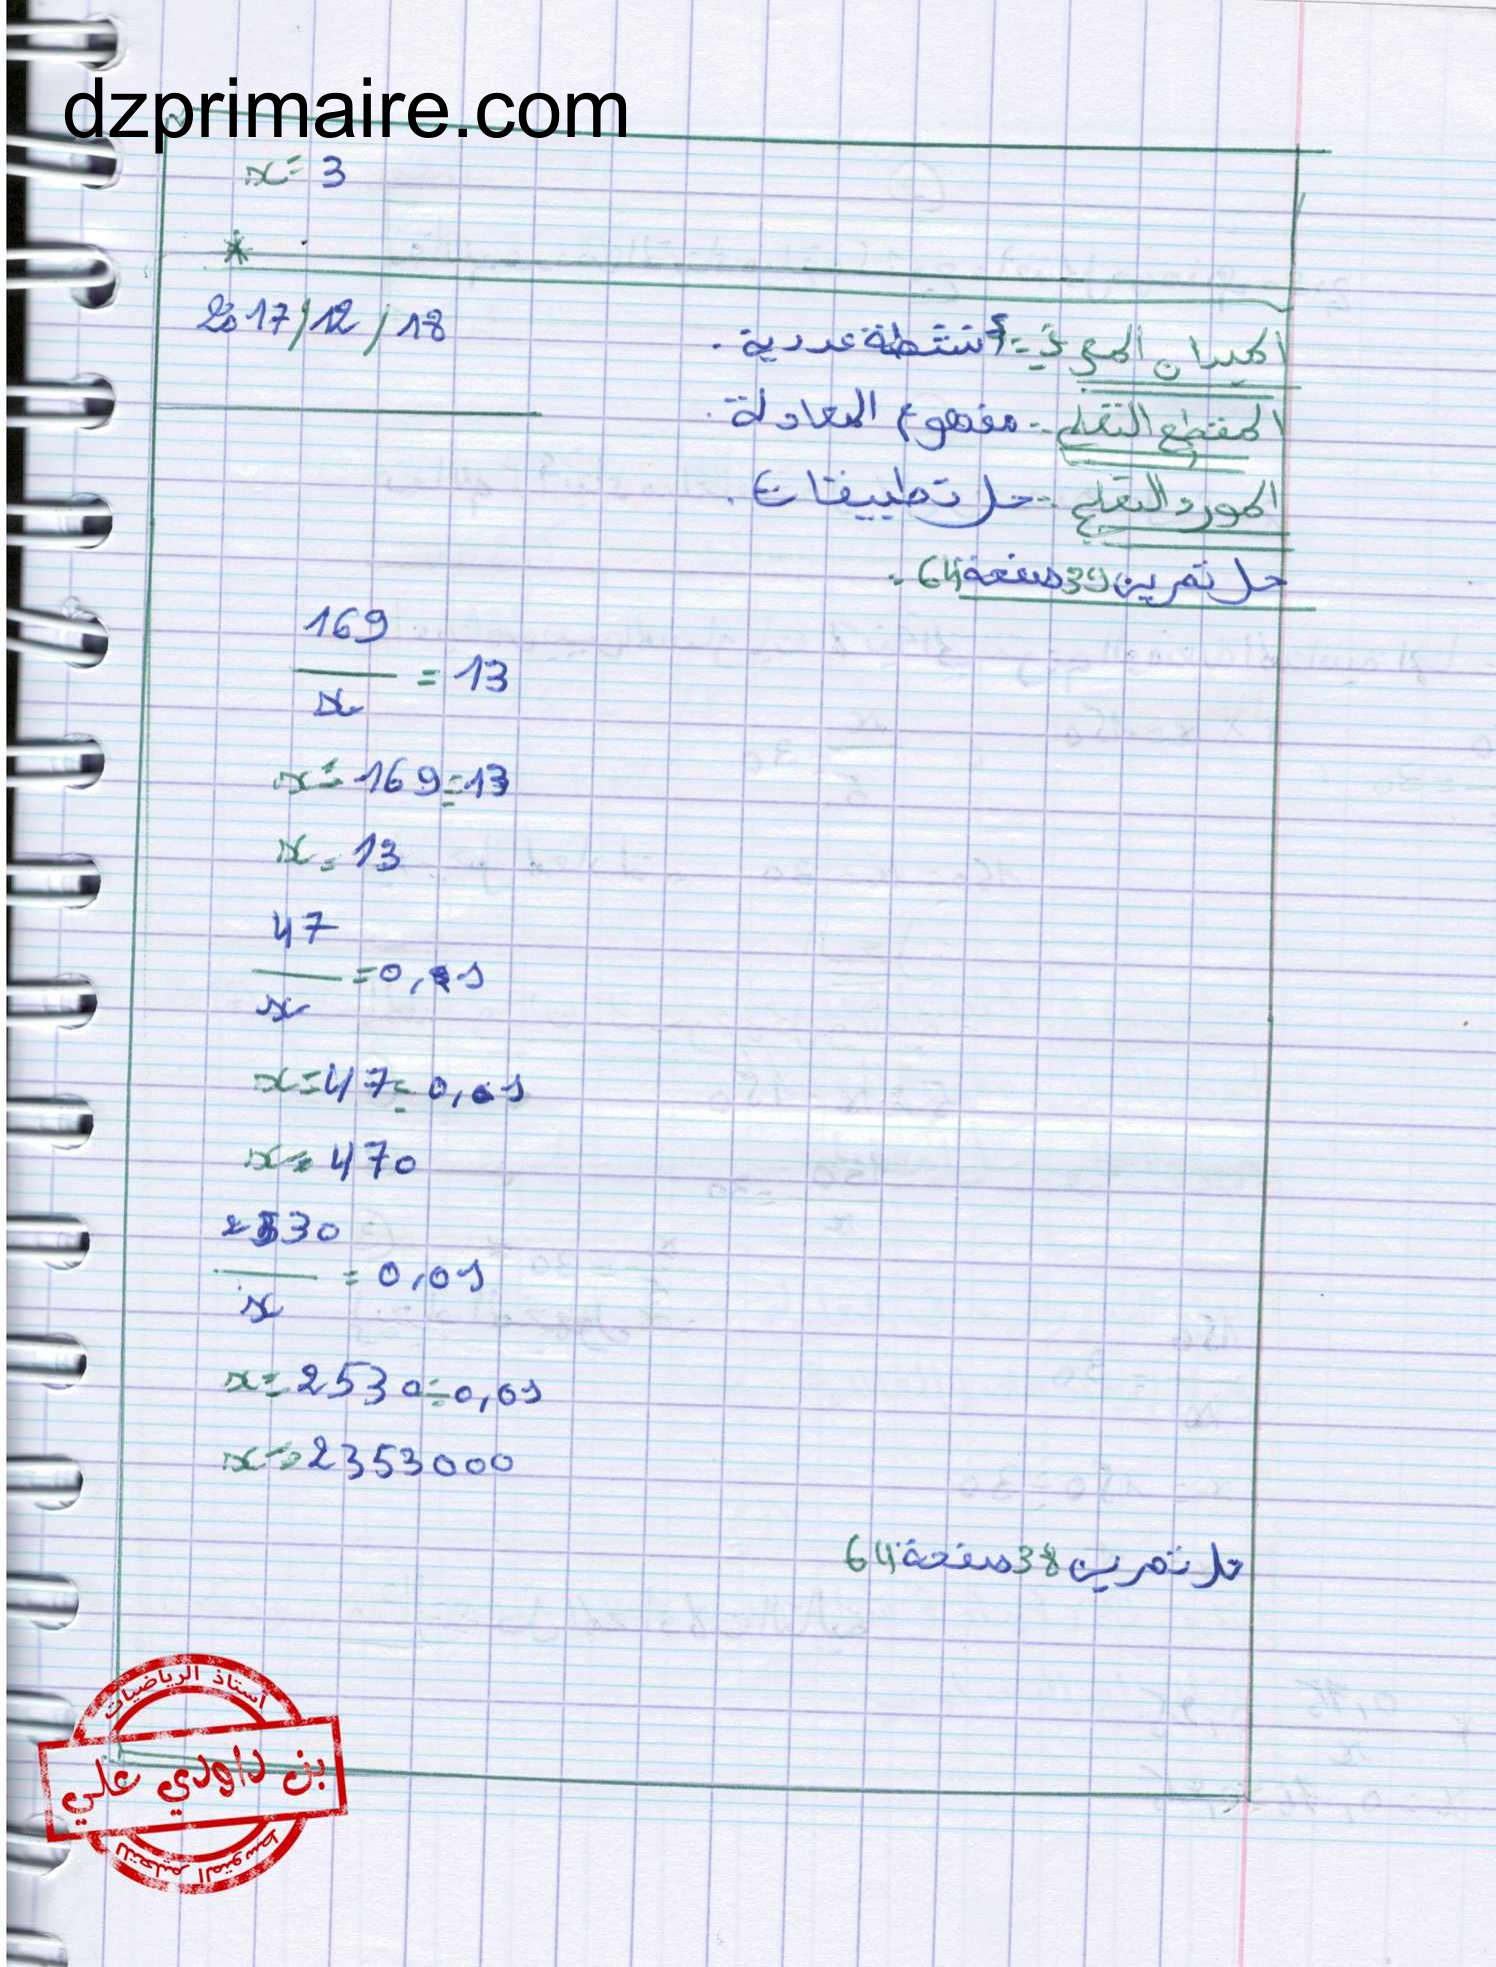 dzprimaire.com
x = 3
*
2017/12/18
الميدان المعرفي: أنشطة عددية.
المقطع التعلمي: مفهوم المعادلة.
المورد التعلمي: حل تطبيقات.
حل تمرين 39 صفحة 64:
169
— = 13
x
x = 169 ÷ 13
x = 13
47
— = 0,1
x
x = 47 ÷ 0,1
x = 470
2530
— = 0,01
x
x = 2530 ÷ 0,01
x = 2353000
حل تمرين 38 صفحة 64
أستاذ الرياضيات
بن داودي علي
للتعليم المتوسط